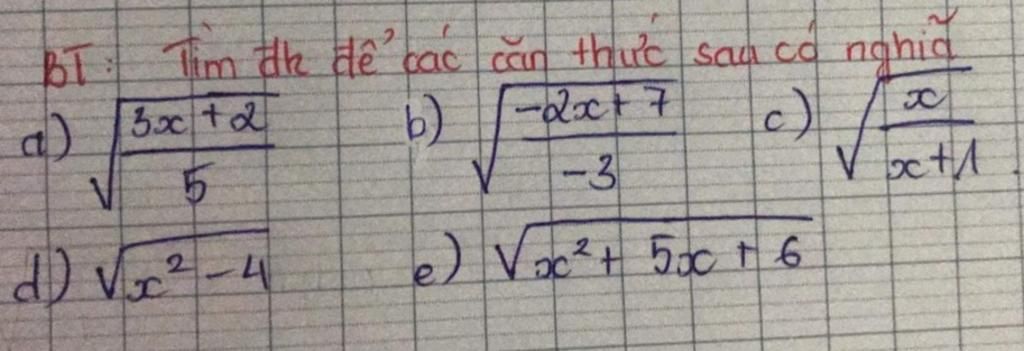 BT: Tìm đk để các căn thức sau có nghĩa
a) √((3x + 2)/5) b) √((-2x + 7)/-3) c) √(x/(x+1))
d) √(x² - 4) e) √(x² + 5x + 6)